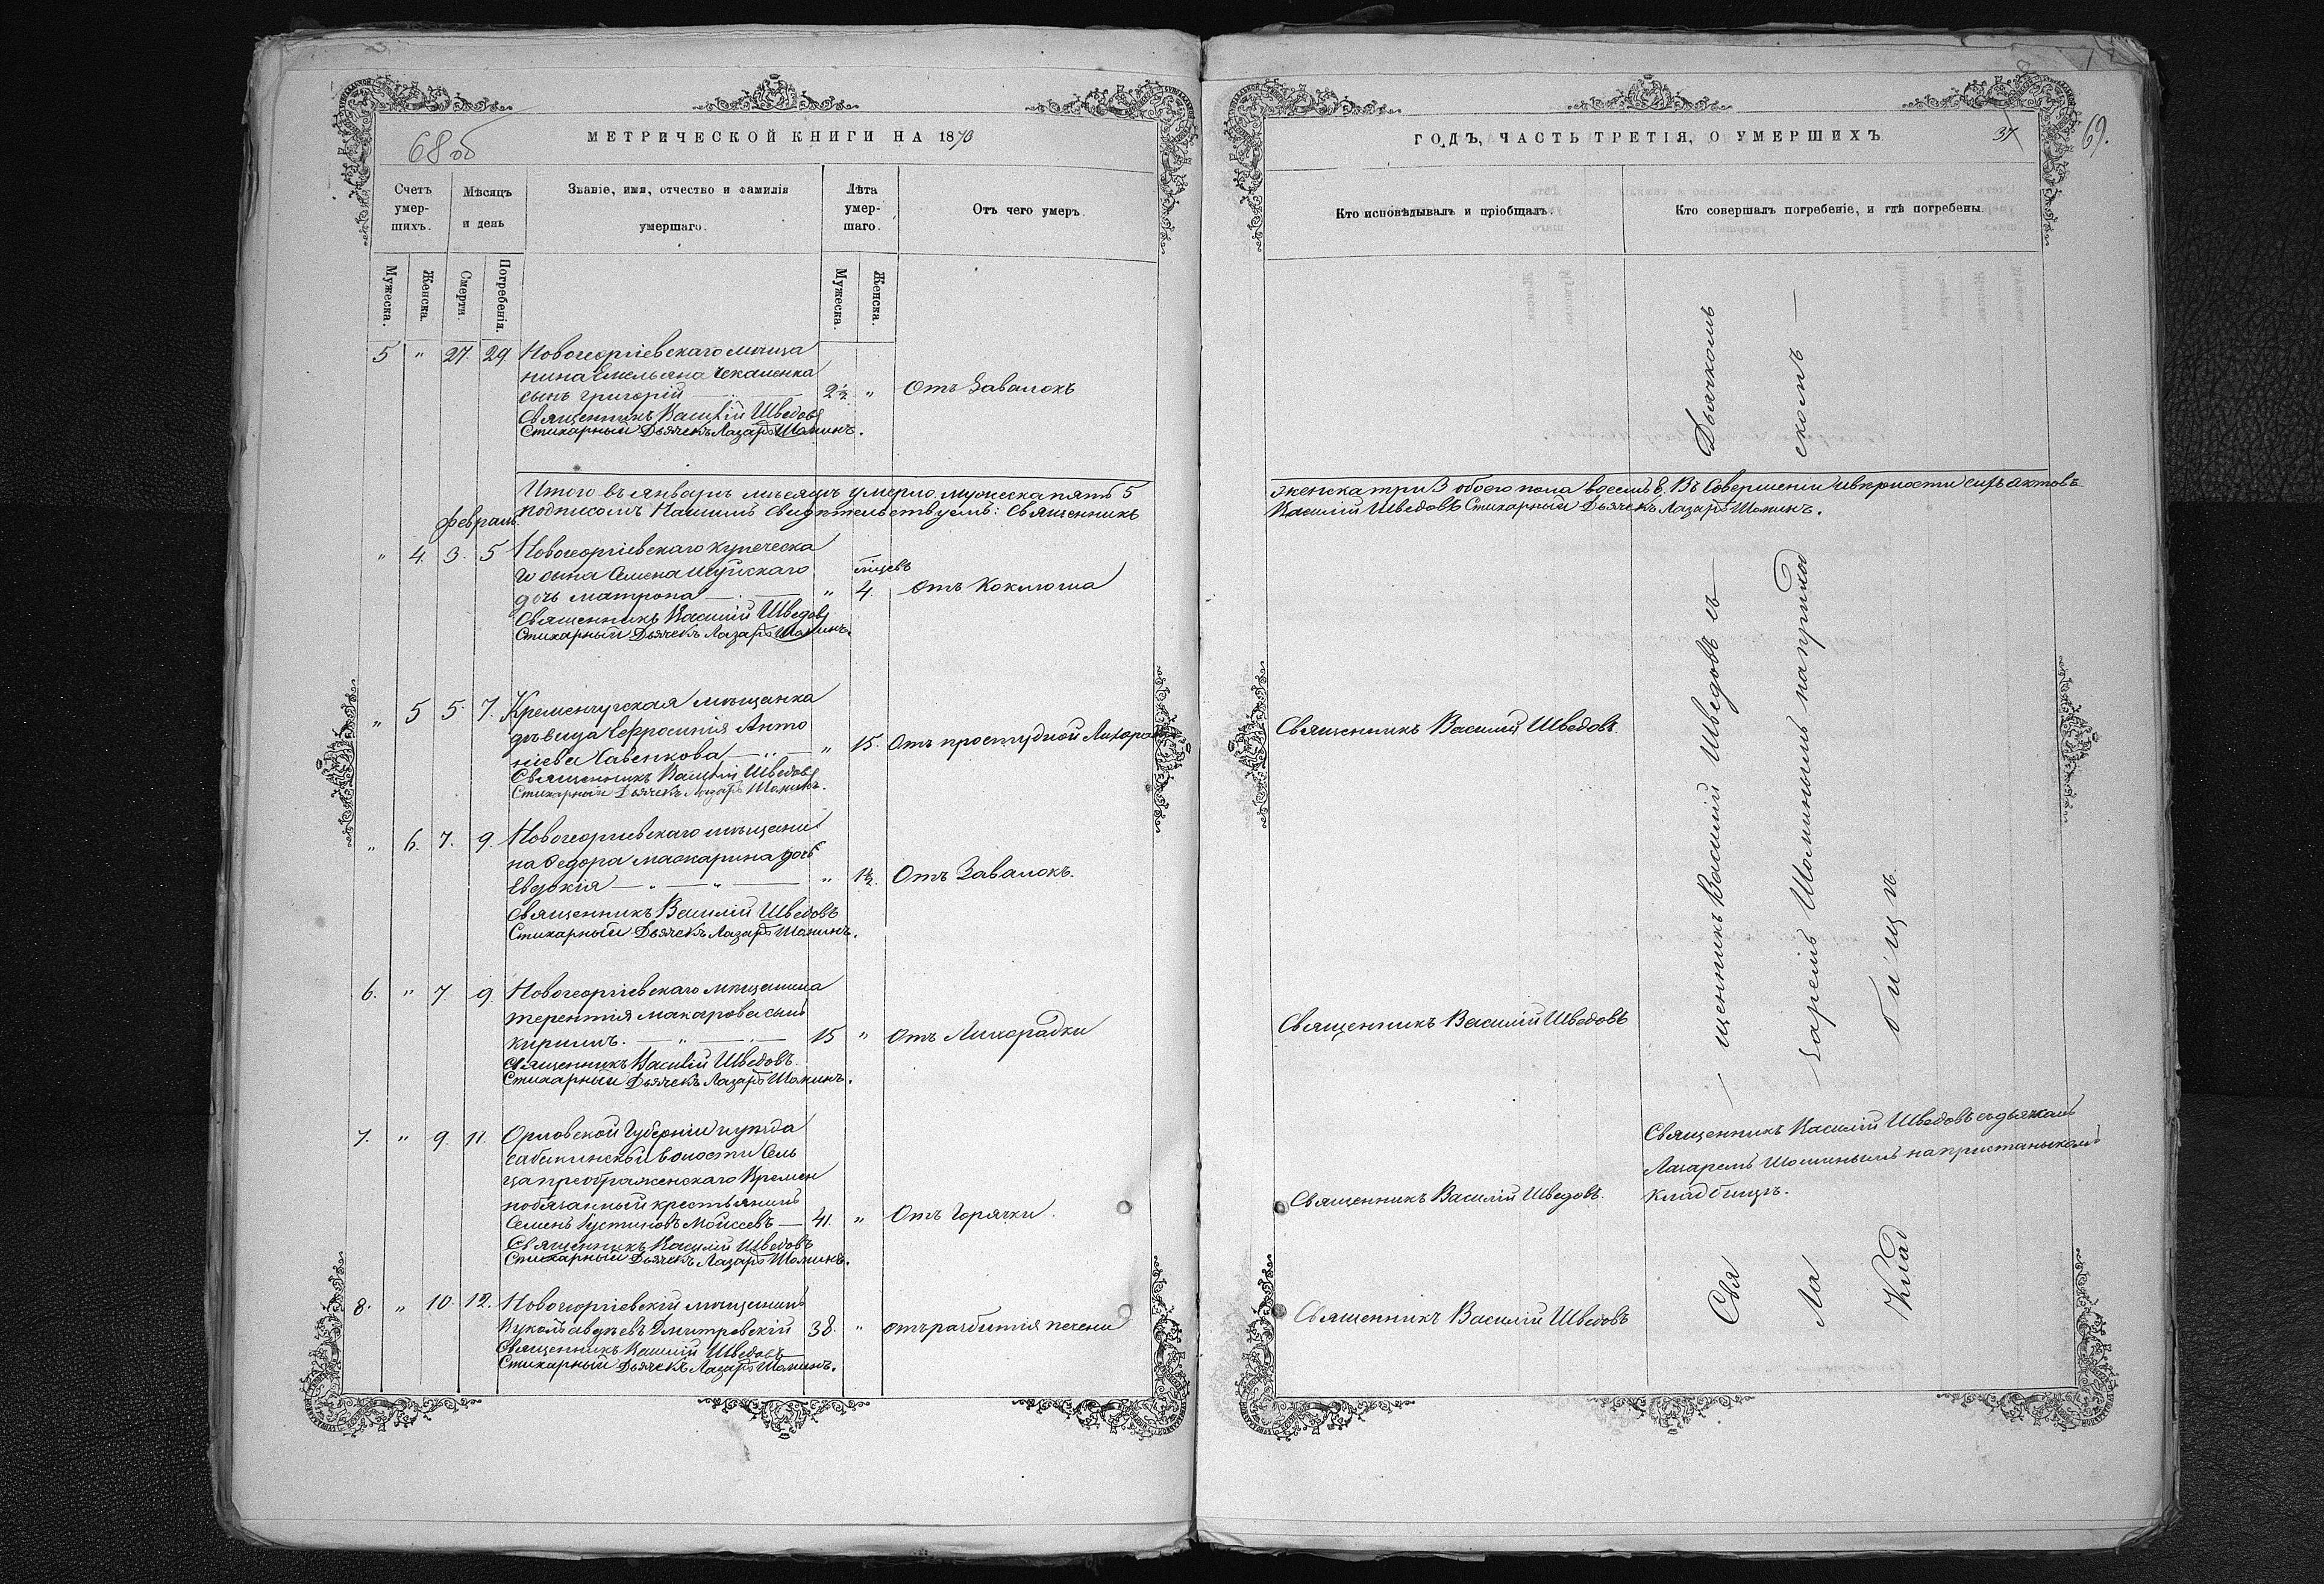 68 об
МЕТРИЧЕСКОЙ КНИГИ НА 1873
Счетъ умер-шихъ.
Мѣсяцъ и день
Званіе, имя, отчество и фамилія умершаго.
Лѣта умер-шаго.
Отъ чего умеръ.
Мужеска.
Женска.
Смерти.
Погребенія.
Мужеска.
Женска.
5 " 27. 29. Новогеоргіевскаго мѣща
нина Емельяна Чекаленка
сынъ Григорій 2½ " Отъ Завалокъ
Священникъ Василій Шведовъ
Стихарный Дьячекъ Лазарь Шоминъ.
Итого въ январѣ мѣсяцѣ умерло мужеска пять 5
подписомъ Нашимъ Свидѣтельствуемъ: Священникъ
Февраль
" 4. 3. 5 Новогеоргіевскаго купеческа
го сына Семена Шуйскаго мѣсяцевъ
дочь Матрона " 4. Отъ Коклюша
Священникъ Василій Шведовъ
Стихарный Дьячекъ Лазарь Шоминъ.
" 5 5. 7. Кременчугская мѣщанка
дѣвица Ефросинія Анто
ніева Хавенкова " 15. Отъ простудной Лихорадки
Священникъ Василій Шведовъ
Стихарный Дьячекъ Лазарь Шоминъ.
" 6. 7. 9. Новогеоргіевскаго мѣщани
на Федора Маскарина дочь
Евдокія " 1½. Отъ Завалокъ.
Священникъ Василій Шведовъ
Стихарный Дьячекъ Лазарь Шоминъ.
6. " 7. 9. Новогеоргіевскаго мѣщанина
Терентія Макарова сынъ
Кирилъ. 15 " Отъ Лихорадки
Священникъ Василій Шведовъ.
Стихарный Дьячекъ Лазарь Шоминъ.
7. " 9. 11. Орловской Губерніи и уѣзда
волости Сель
ца преображенскаго Времен
нобязанный крестьянинъ
Семенъ Густиновъ Моисеевъ 41. " Отъ Горячки.
Священникъ Василій Шведовъ
Стихарный Дьячекъ Лазарь Шоминъ.
8. " 10. 12. Новогеоргіевскій мѣщанинъ
Авдѣевъ Дмитровскій 38. " отъ разбитія печени
Священникъ Василій Шведовъ
Стихарный Дьячекъ Лазарь Шоминъ.
ГОДЪ, ЧАСТЬ ТРЕТІЯ, О УМЕРШИХЪ
37
69.
Кто исповѣдывалъ и пріобщалъ.
Кто совершалъ погребеніе, и гдѣ погребены.
женска три 3 обоего пола восемь 8. Въ Совершеніи и вѣрности сихъ актовъ
Василій Шведовъ Стихарный Дьячекъ Лазарь Шоминъ.
Священникъ Василій Шведовъ.
Священникъ Василій Шведовъ
Священникъ Василій Шведовъ.
Священникъ Василій Шведовъ
Священникъ Василій Шведовъ съ дьячкомъ
Лазаремъ Шоминымъ на пристанскомъ
кладбищѣ.
Свя — щенникъ Василій Шведовъ съ — Дьячкомъ
Ла — заремъ Шоминымъ на приход скомъ —
Клад бищѣ.